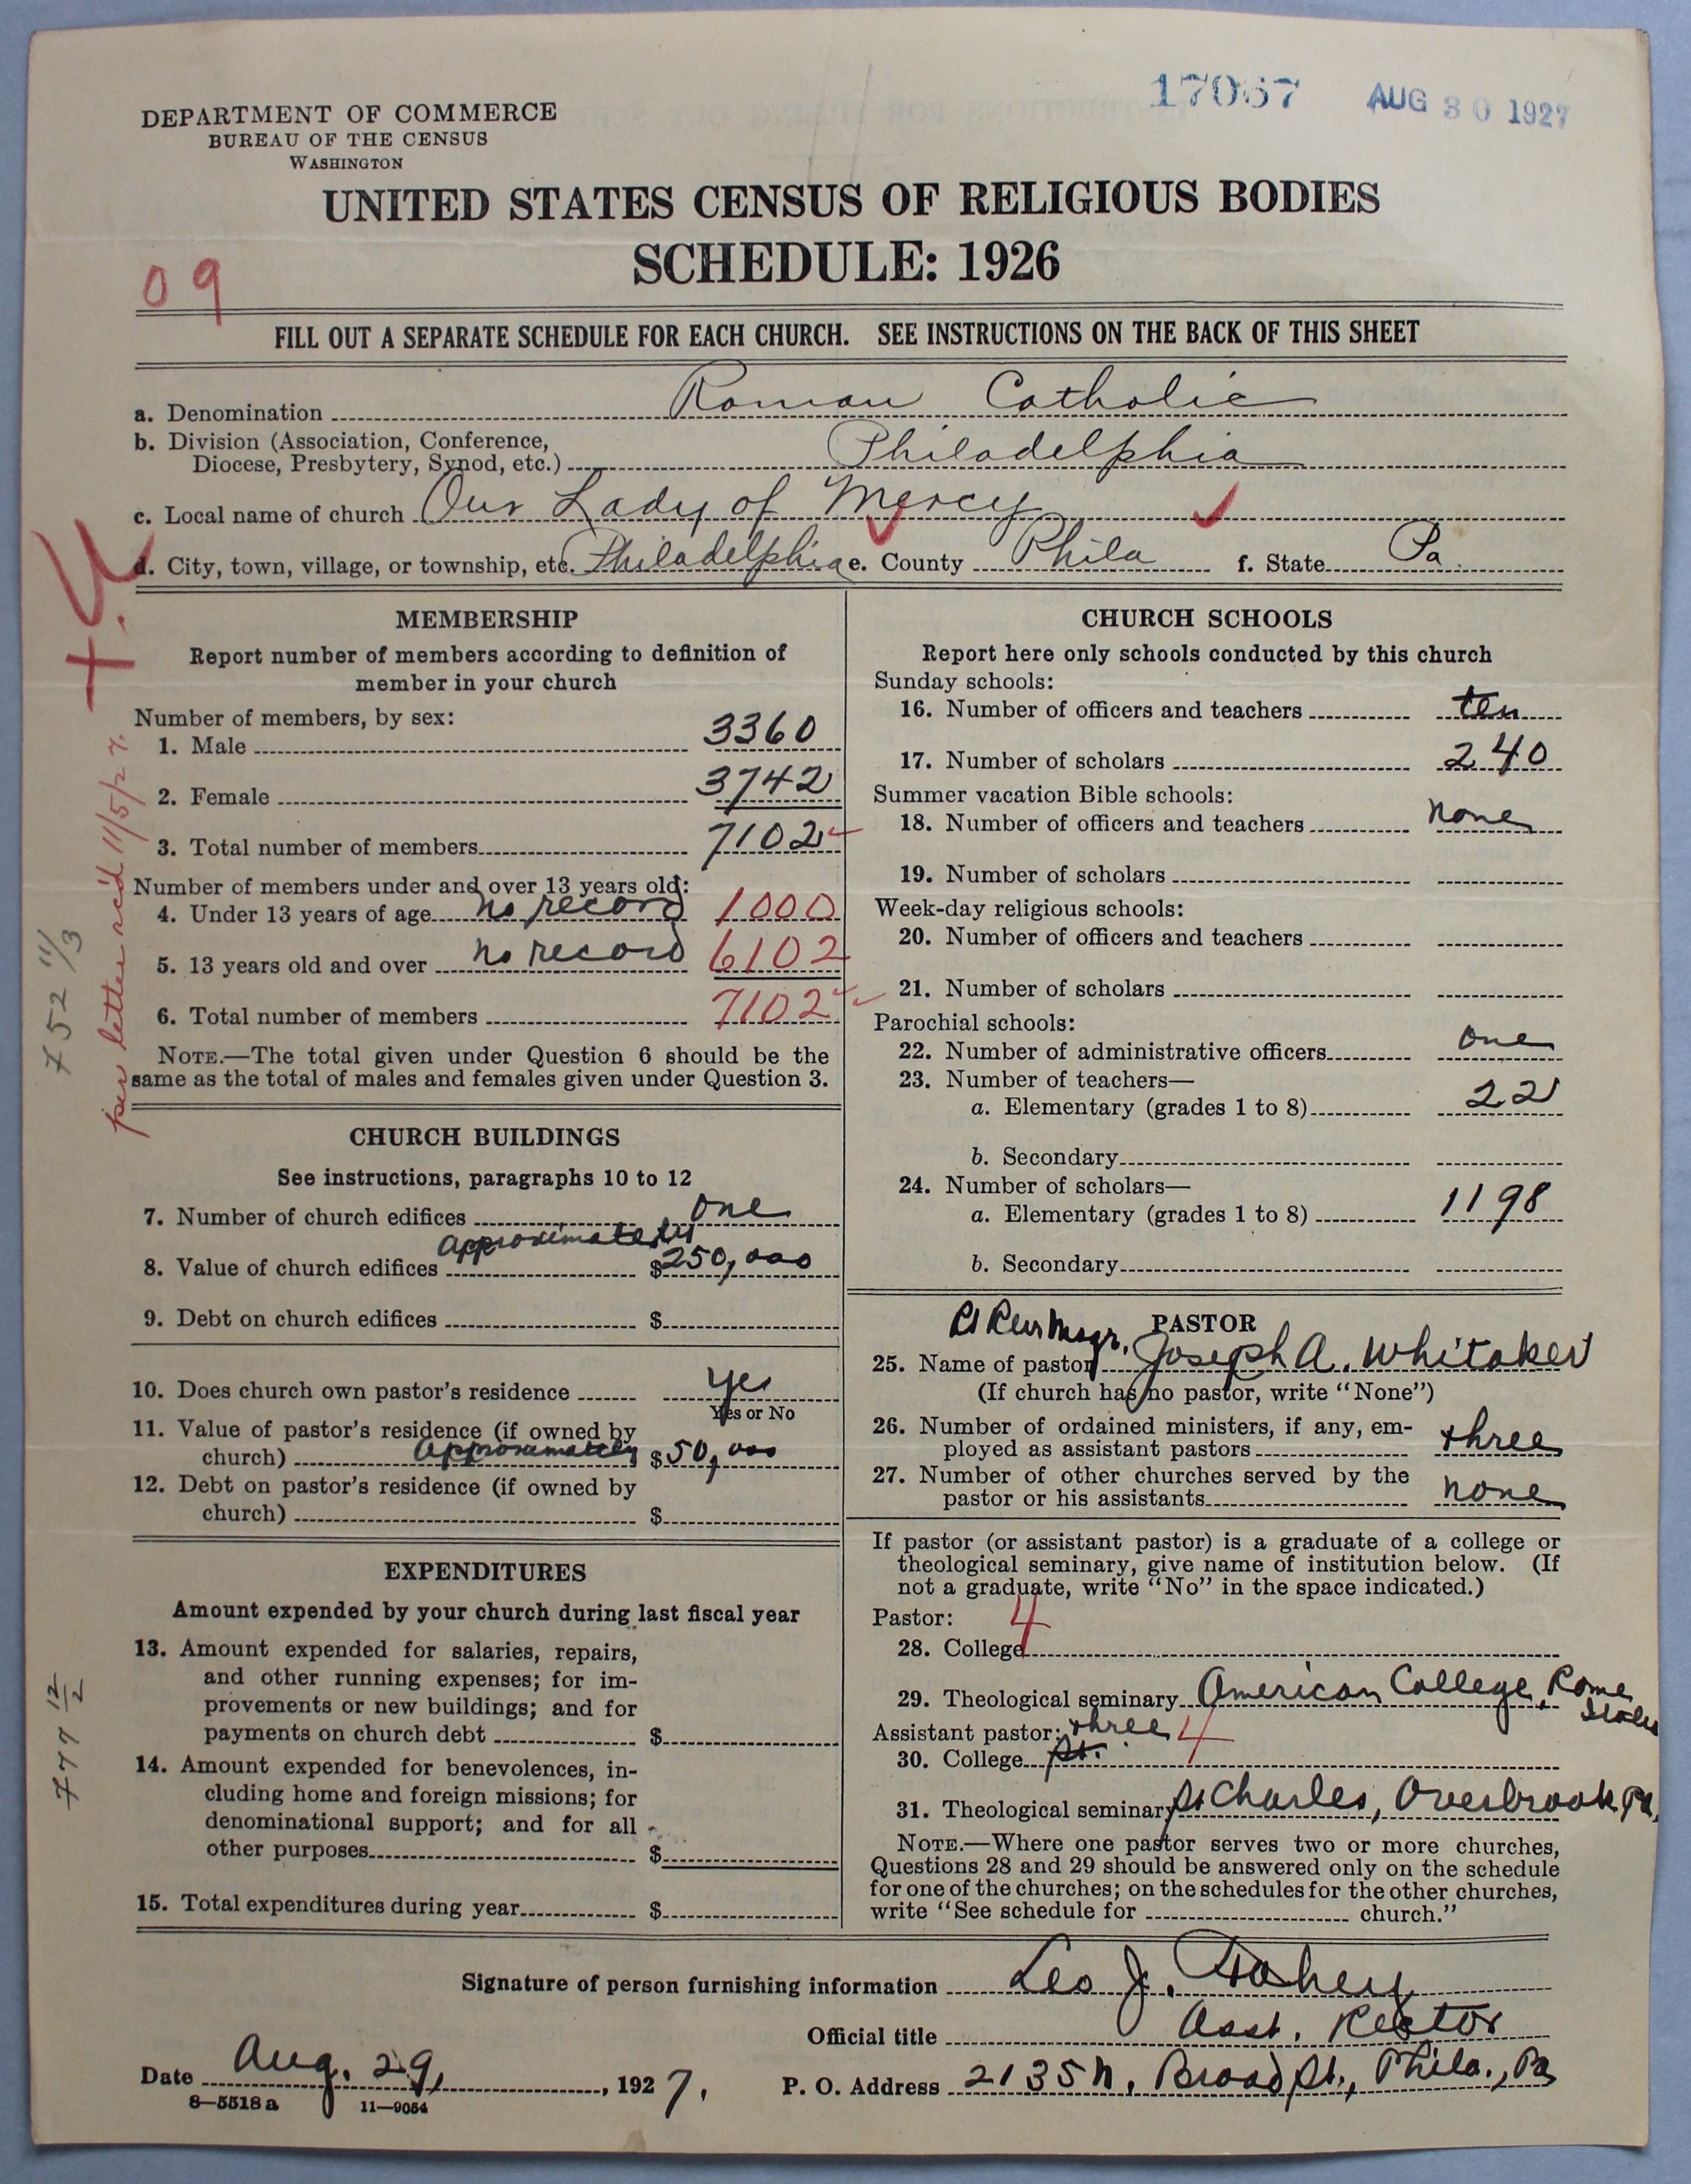 17067 AUG 30 1927
DEPARTMENT OF COMMERCE
BUREAU OF THE CENSUS
WASHINGTON
UNITED STATES CENSUS OF RELIGIOUS BODIES
SCHEDULE: 1926
09
FILL OUT A SEPARATE SCHEDULE FOR EACH CHURCH. SEE INSTRUCTIONS ON THE BACK OF THIS SHEET
a. Denomination Roman Catholic
b. Division (Association, Conference,
Diocese, Presbytery, Synod, etc.) Philadelphia
c. Local name of church Our Lady of Mercy
d. City, town, village, or township, etc. Philadelphia e. County Phila f. State Pa.
MEMBERSHIP
Report number of members according to definition of
member in your church
Number of members, by sex:
1. Male 3360
2. Female 3742
3. Total number of members 7102
Number of members under and over 13 years old:
4. Under 13 years of age no record 1000
5. 13 years old and over no record 6102
6. Total number of members 7102
NOTE.—The total given under Question 6 should be the
same as the total of males and females given under Question 3.
per letter rec'd 11/5/27.
752 11/3
CHURCH BUILDINGS
See instructions, paragraphs 10 to 12
7. Number of church edifices one
approximately
8. Value of church edifices $250,000
9. Debt on church edifices $
10. Does church own pastor's residence yes
Yes or No
11. Value of pastor's residence (if owned by
church) approximately $50,000
12. Debt on pastor's residence (if owned by
church) $
EXPENDITURES
Amount expended by your church during last fiscal year
13. Amount expended for salaries, repairs,
and other running expenses; for im-
provements or new buildings; and for
payments on church debt $
777 12/2
14. Amount expended for benevolences, in-
cluding home and foreign missions; for
denominational support; and for all
other purposes $
15. Total expenditures during year $
CHURCH SCHOOLS
Report here only schools conducted by this church
Sunday schools:
16. Number of officers and teachers ten
17. Number of scholars 240
Summer vacation Bible schools:
18. Number of officers and teachers none
19. Number of scholars
Week-day religious schools:
20. Number of officers and teachers
21. Number of scholars
Parochial schools:
22. Number of administrative officers one
23. Number of teachers—
a. Elementary (grades 1 to 8) 22
b. Secondary
24. Number of scholars—
a. Elementary (grades 1 to 8) 1198
b. Secondary
PASTOR
Rt Rev Msgr.
25. Name of pastor Joseph A. Whitaker
(If church has no pastor, write "None")
26. Number of ordained ministers, if any, em-
ployed as assistant pastors three
27. Number of other churches served by the
pastor or his assistants none
If pastor (or assistant pastor) is a graduate of a college or
theological seminary, give name of institution below. (If
not a graduate, write "No" in the space indicated.)
Pastor: 4
28. College
29. Theological seminary American College, Rome
Assistant pastor: three 4
30. College St.
31. Theological seminary St Charles, Overbrook, Pa.
NOTE.—Where one pastor serves two or more churches,
Questions 28 and 29 should be answered only on the schedule
for one of the churches; on the schedules for the other churches,
write "See schedule for church."
Signature of person furnishing information Leo J. Fahey
Official title Asst. Rector
Date Aug. 29, 1927. P. O. Address 2135 N. Broad St., Phila., Pa
8—5518 a 11—9054